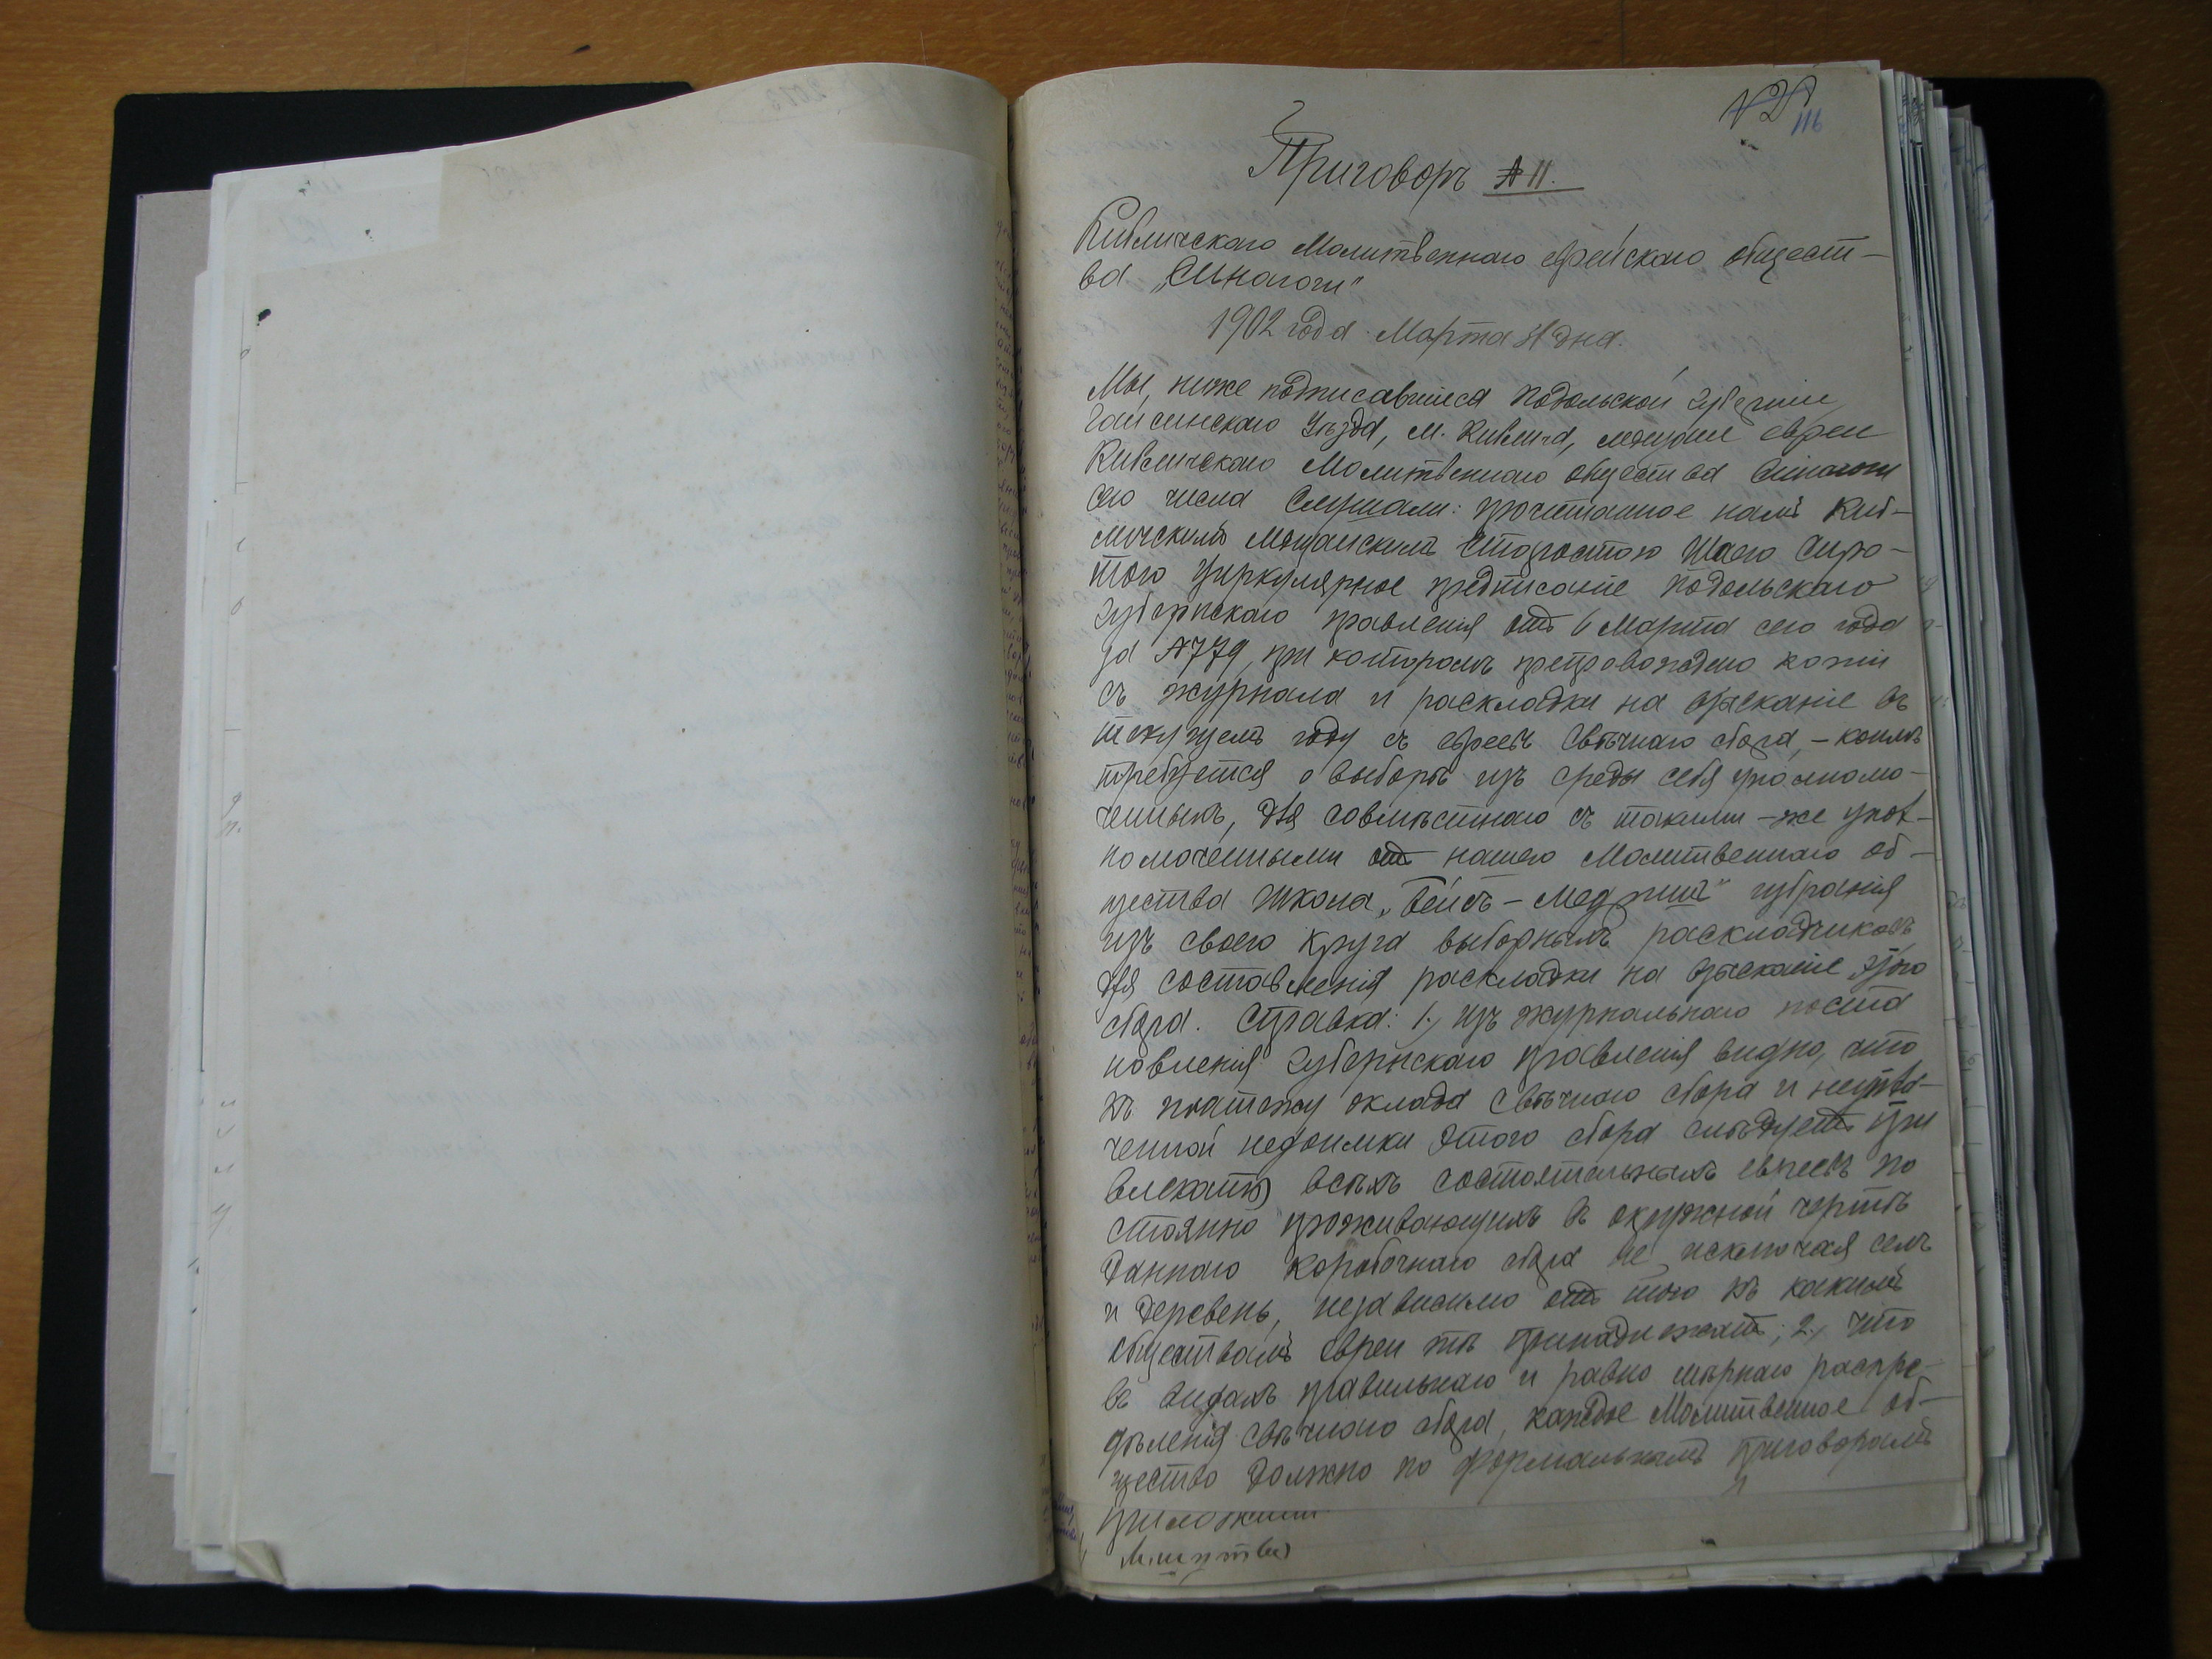 116
Приговоръ № 11.
Кивличскаго Молитвеннаго еврейскаго общест-
ва „Синагоги"
1902 года Марта 31 дня.
Мы, ниже подписавшіеся Подольской губерніи
Гайсинскаго Уѣзда, м. Кивлича, мѣщане евреи
Кивличскаго Молитвеннаго общества Синагоги
сего числа Слушали: прочитанное намъ Кив-
личскимъ мѣщанскимъ Старостою Сиро-
тою циркулярное предписаніе Подольскаго
Губернскаго правленія отъ 6 Марта сего года
за №779, при которомъ препровождено копіи
съ журнала и раскладки на взысканіе въ
текущемъ году съ евреевъ Свѣчнаго сбора, – коимъ
требуется о выборѣ изъ среды себя уполномо-
ченныхъ, для совмѣстнаго съ такими-же упол-
номоченными отъ нашего Молитвеннаго об-
щества Школа „Бейсъ-Медришъ" избранія
изъ своего круга выборныхъ раскладчиковъ
для составленія раскладки на взысканіе этого
сбора. Справка: 1., изъ журнальнаго поста
новленія Губернскаго правленія видно, что
къ платежу оклада Свѣчнаго сбора и неупла-
ченной недоимки этого сбора слѣдуетъ при
влекать всѣхъ состоятельныхъ евреевъ по
стоянно проживающихъ въ окружной чертѣ
даннаго Коробочнаго сбора не исключая селъ
и деревень, независимо отъ того къ какимъ
обществамъ евреи тѣ принадлежатъ; 2., что
въ видахъ правильнаго и равно мѣрнаго распре-
дѣленія Свѣчнаго сбора, каждое Молитвенное об-
щество должно по формальнымъ приговорамъ